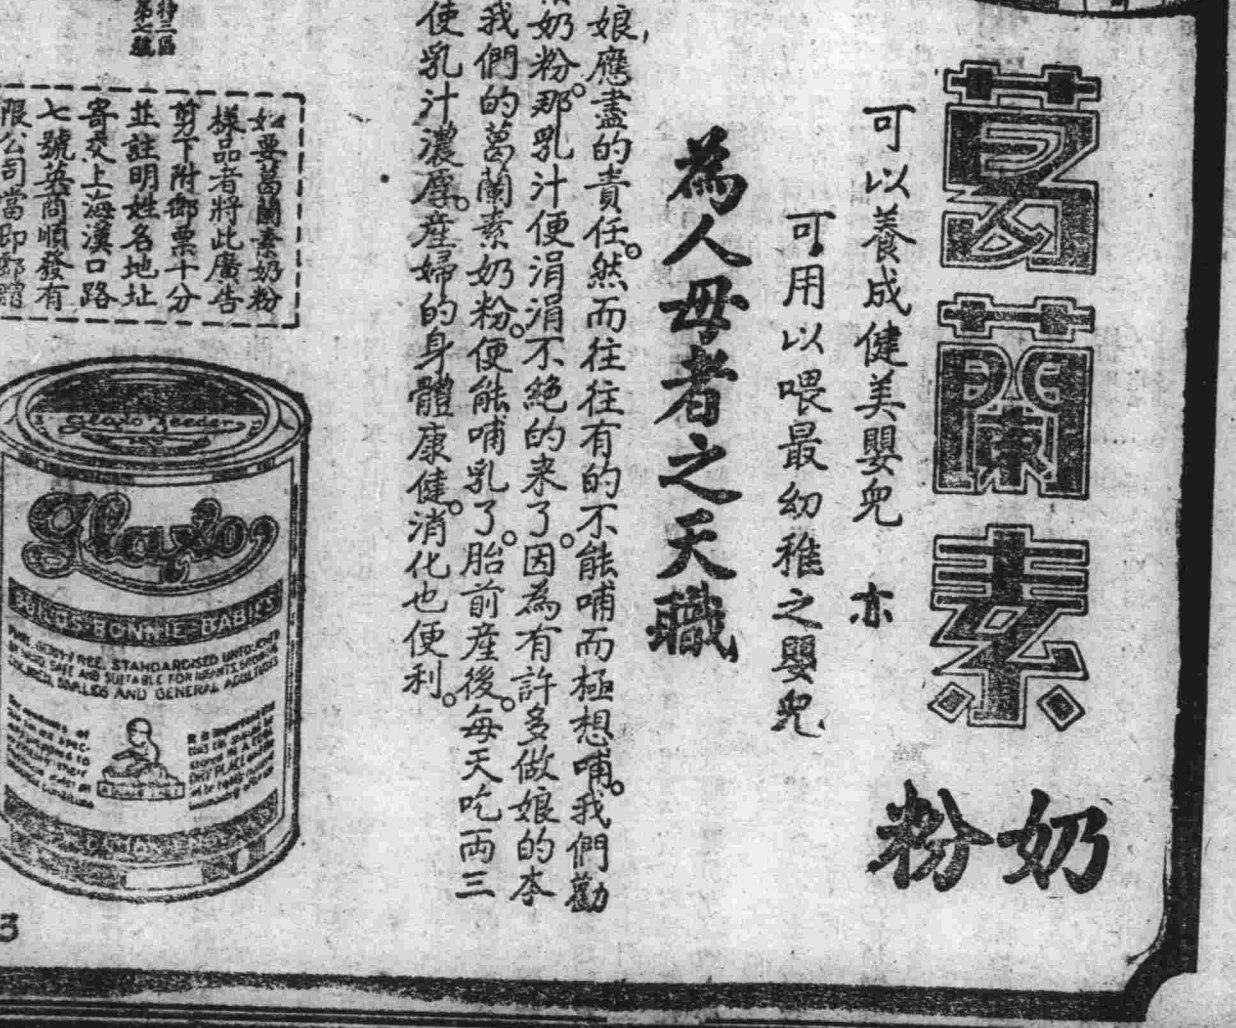 葛蘭素
奶粉
可以養成健美嬰兒 亦
可用以喂最幼稚之嬰兒
為人母者之天職
娘,應盡的責任。然而往往有的不能哺而極想哺。我們勸
奶粉。那乳汁便涓涓不絶的来了。因為有許多做娘的本
我們的葛蘭素奶粉。便能哺乳了。胎前産後。每天吃両三
使乳汁濃厚。産婦的身體康健。消化也便利。
特二區
第之號
如要葛蘭素奶粉
樣品者將此廣告
剪下附郵票十分
並註明姓名地址
寄交上海漢口路
七號英商順發有
限公司當即郵贈
Glaxo Feeder
Glaxo
BUILDS BONNIE BABIES
PURE, GERM-FREE, STANDARDISED
SAFE AND SUITABLE FOR INFANTS, GROWING
CHILDREN, INVALIDS AND GENERAL ADULT USES
DRY PLACE
3